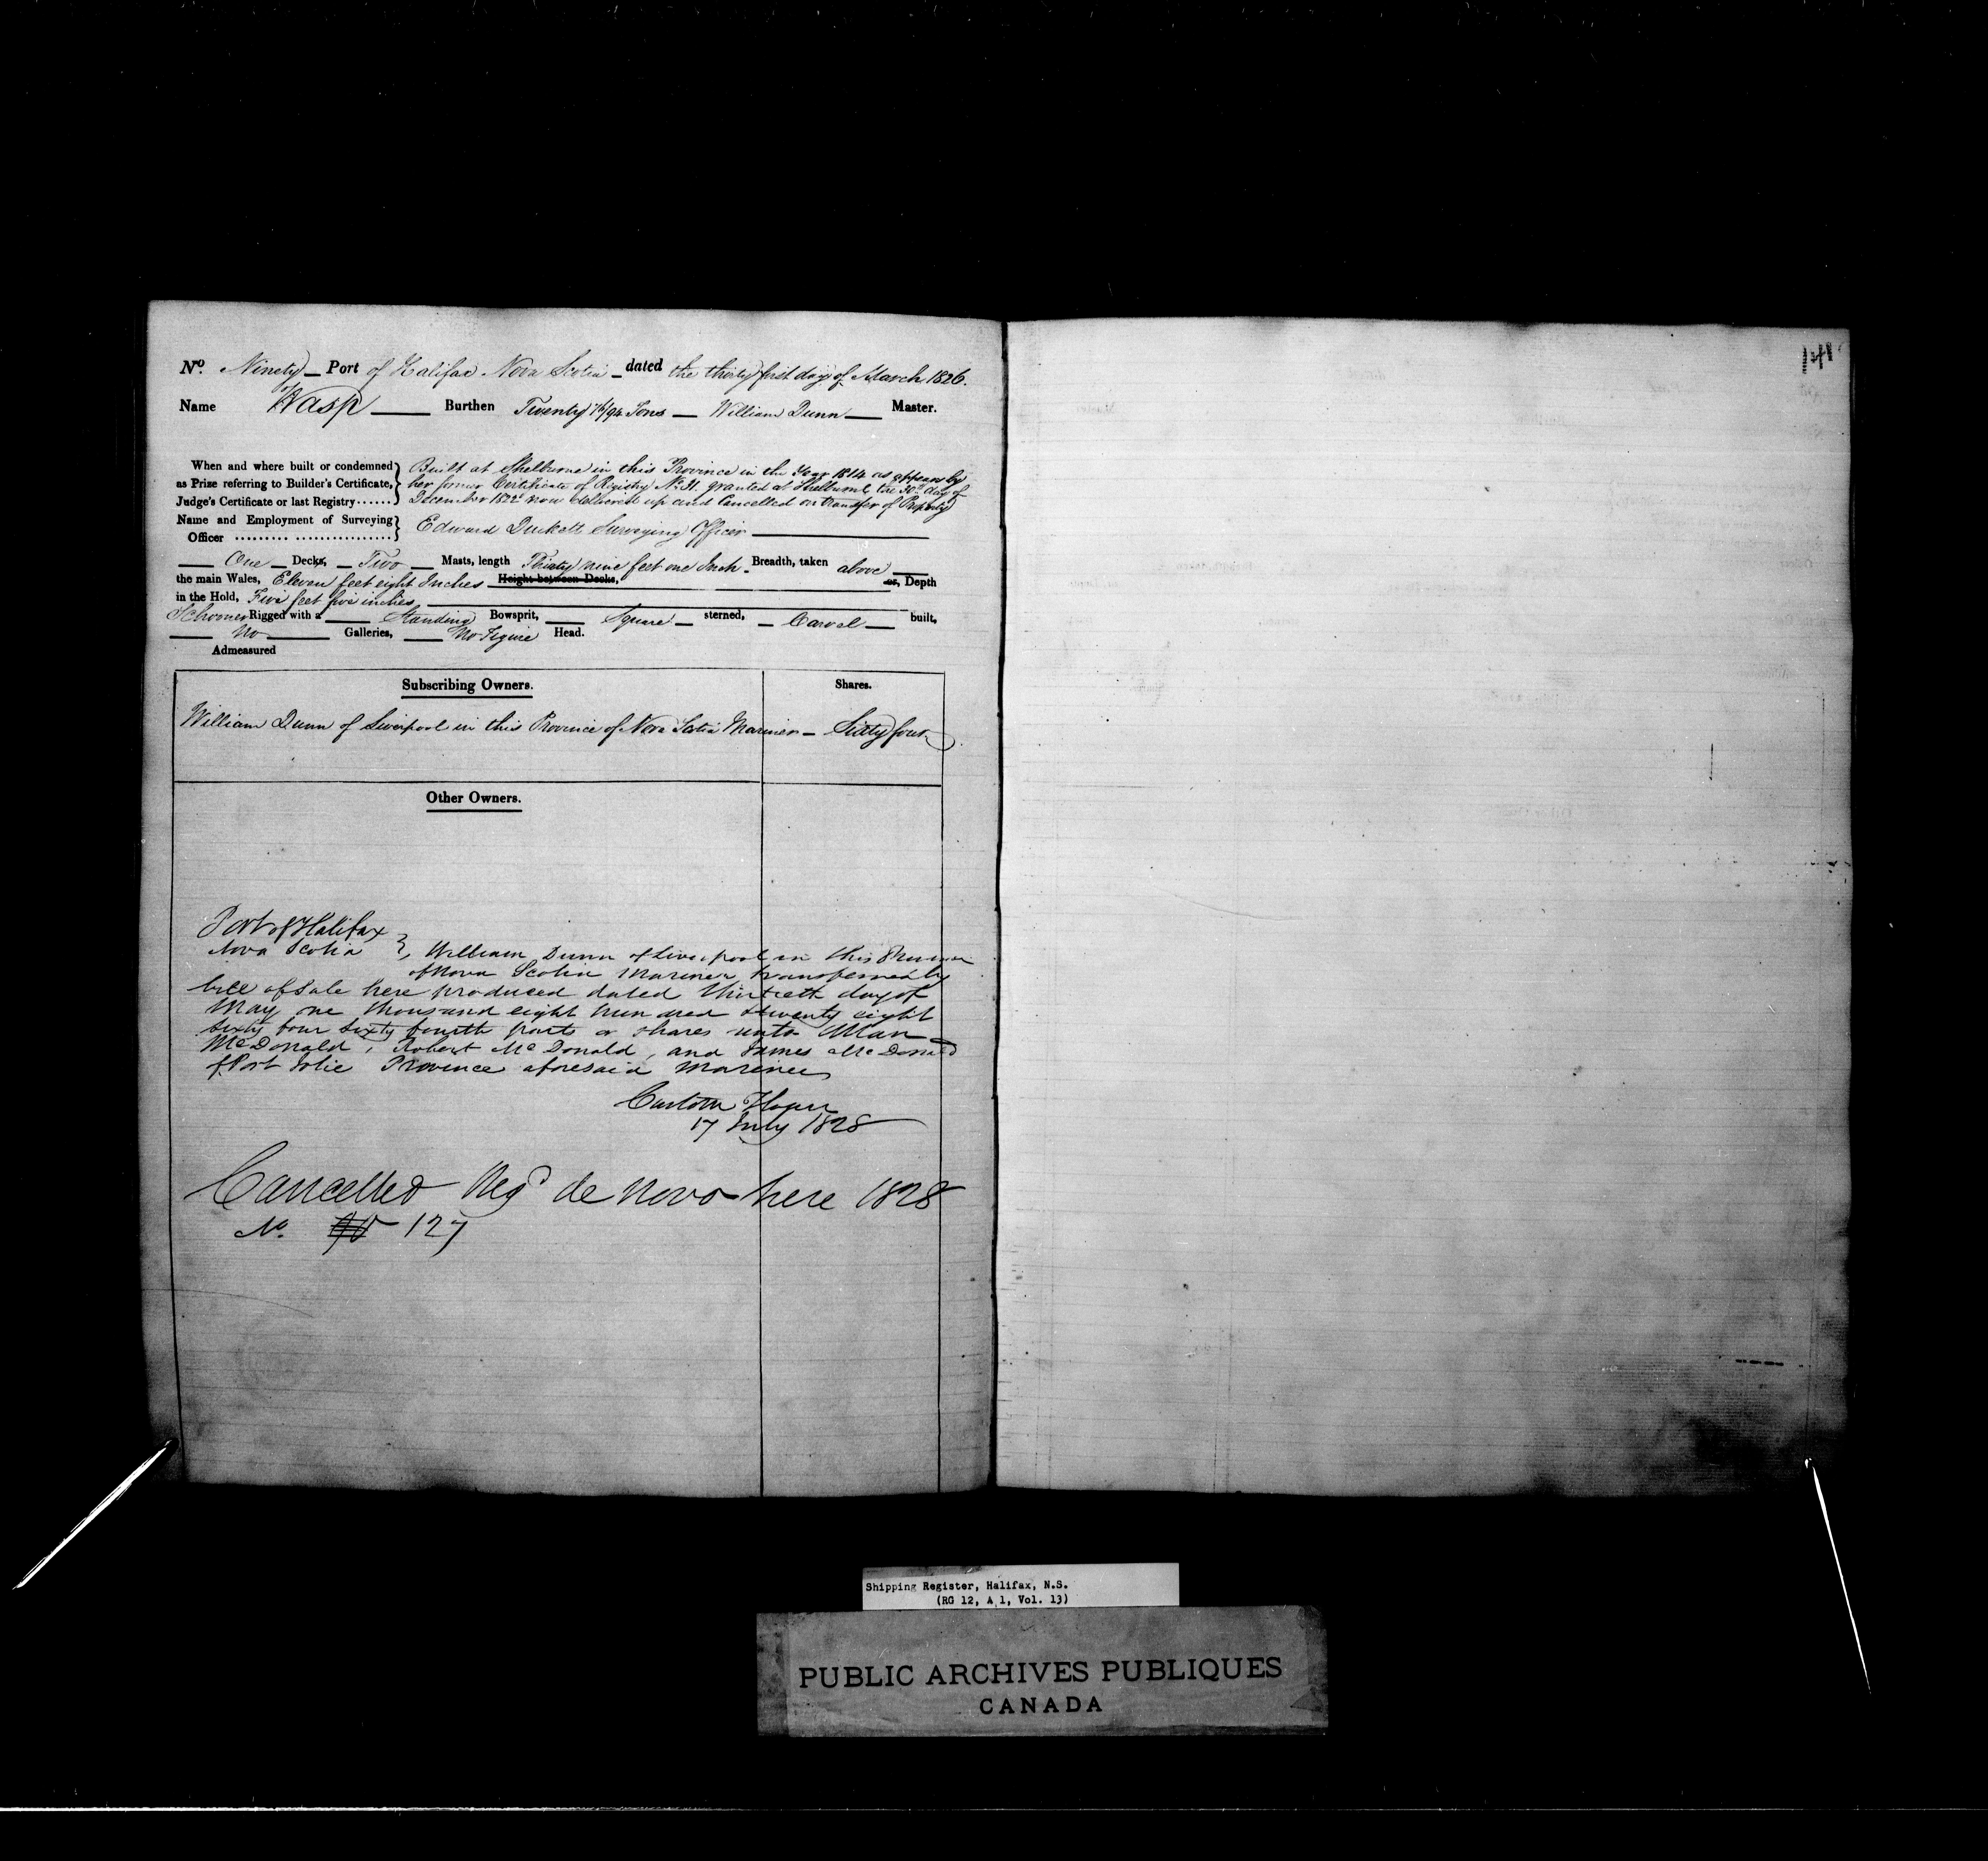 No. Ninety Port of Halifax Nova Scotia dated the thirty first day of March 1826.
Name Wasp Burthen Twenty /94 Tons William Dunn Master.
When and where built or condemned as Prize referring to Builder's Certificate, Judge's Certificate or last Registry......
Built at Shelburne in this Province in the Year 1814 as appears by
her former Certificate of Registry No. 31 granted at Shelburne the 30th day of
December 1822 now delivered up and Cancelled on transfer of Property
Name and Employment of Surveying Officer
Edward Duckett Surveying Officer
One Decks, Two Masts, length Thirty nine feet one Inch Breadth, taken above
the main Wales, Eleven feet eight Inches Height between Decks, or, Depth
in the Hold, Five feet five inches
Schooner Rigged with a Standing Bowsprit, Square sterned, Carvel built,
No Galleries, No Figure Head.
Admeasured
Subscribing Owners. Shares.
William Dunn of Liverpool in this Province of Nova Scotia Mariner Sixty four
Other Owners.
Port of Halifax
Nova Scotia } William Dunn of Liverpool in this Province
of Nova Scotia Mariner transferred by
bill of Sale here produced dated thirtieth day of
May one thousand eight hundred & twenty eight
Sixty four Sixty fourth parts or shares unto Allan
McDonald, Robert McDonald, and James McDonald
of Port Jolie Province aforesaid Mariners
Custom House
17 July 1828
Cancelled Regd de novo here 1828
No. 90 127
141
Shipping Register, Halifax, N.S.
(RG 12, A 1, Vol. 13)
PUBLIC ARCHIVES PUBLIQUES
CANADA